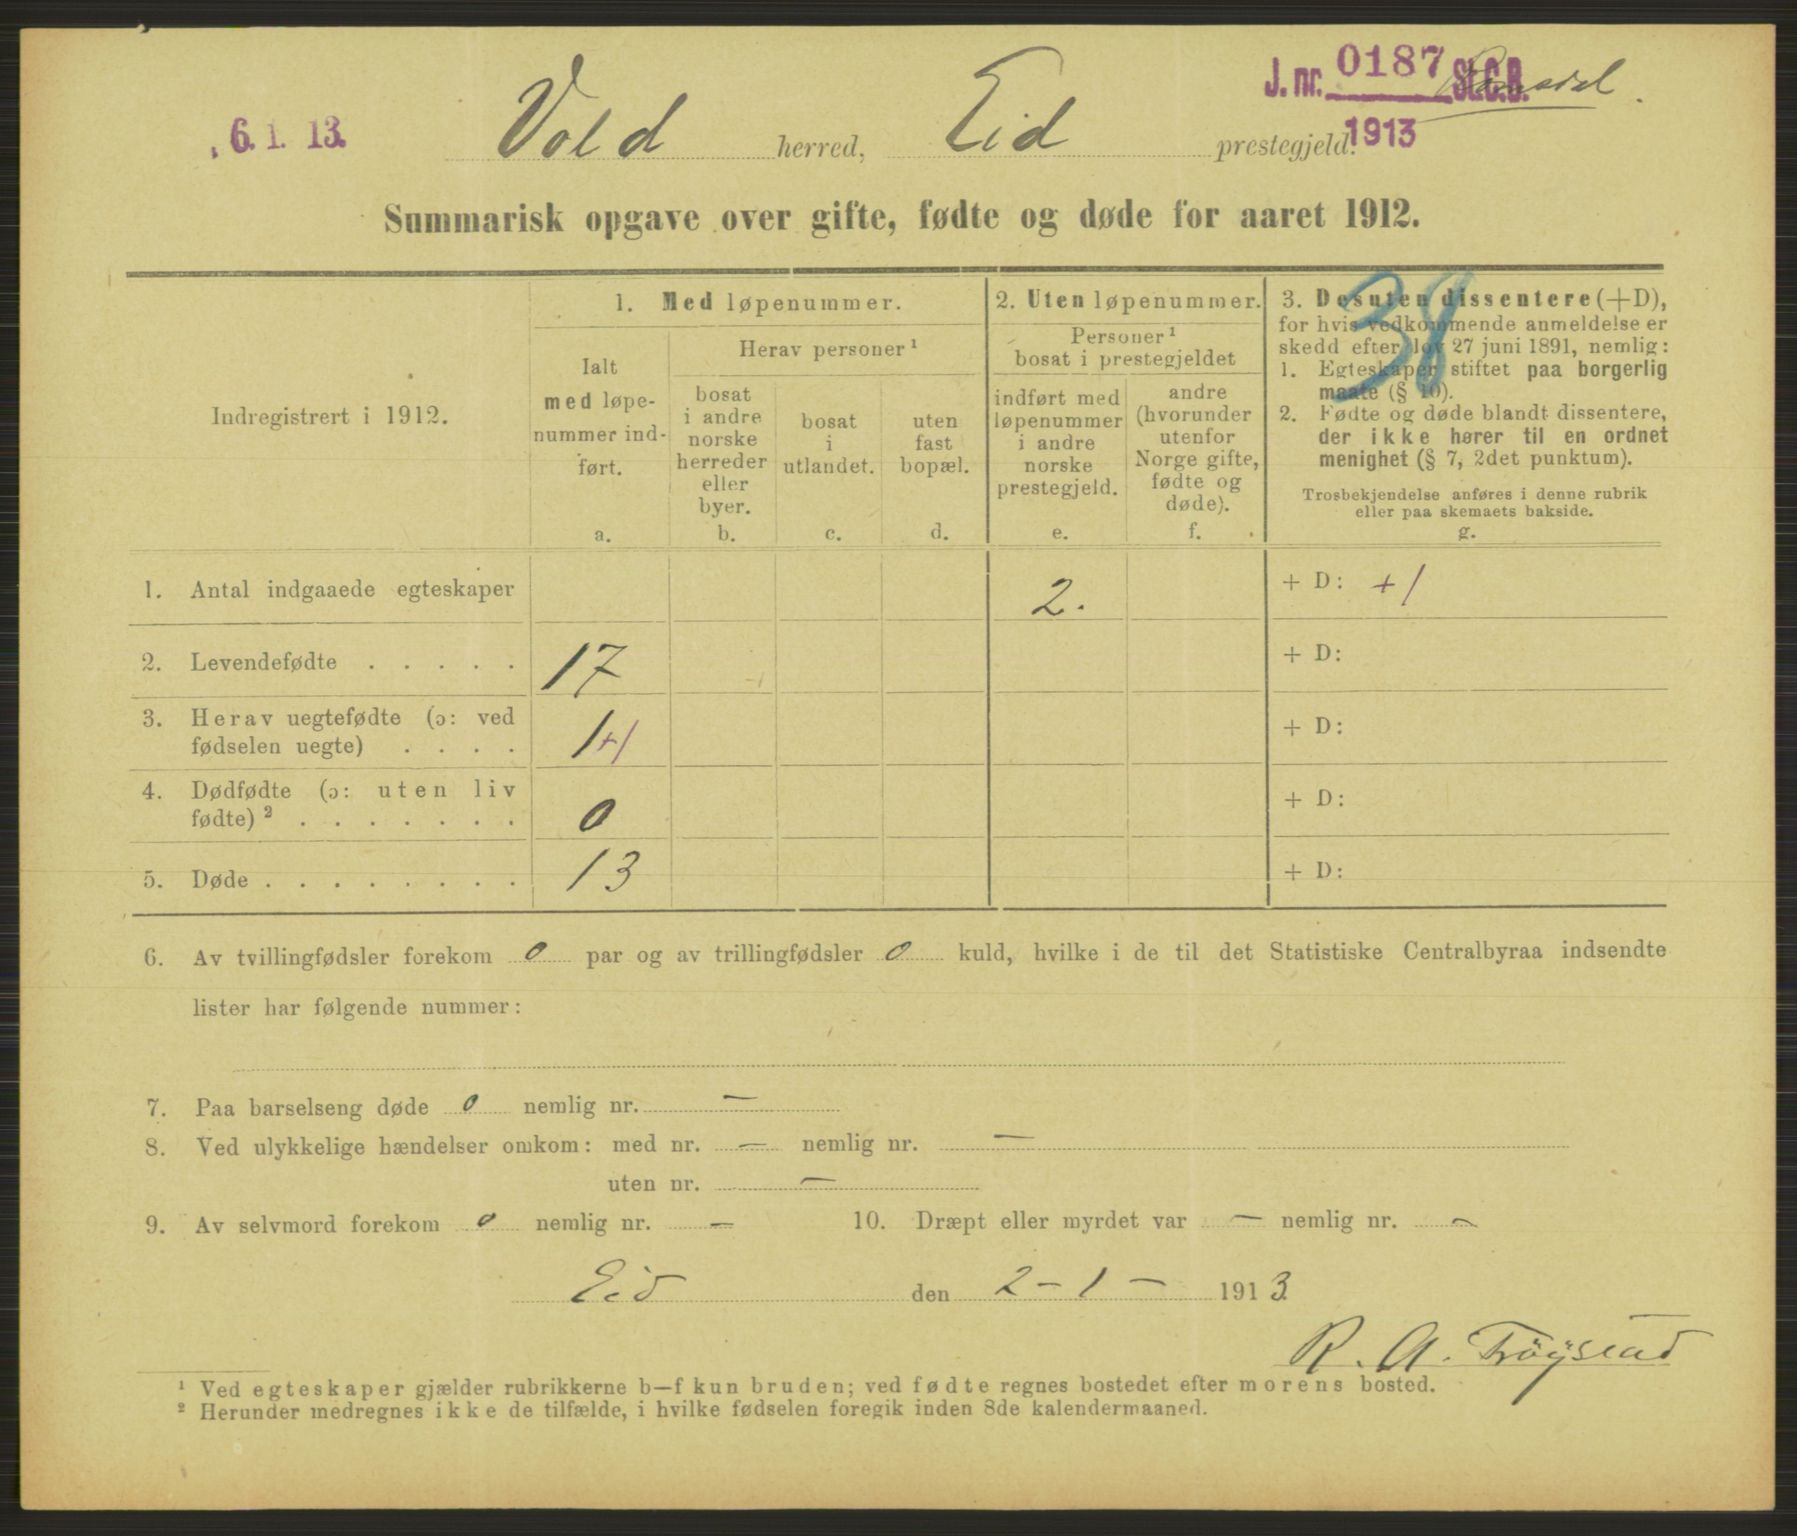 6. 1. 13.
J. nr. 0187 St.C.B.
Romsdal.
1913
Vold herred, Eid prestegjeld.
Summarisk opgave over gifte, fødte og døde for aaret 1912.
38
Indregistrert i 1912.
1. Med løpenummer.
Ialt
med løpe-
nummer ind-
ført.
a.
Herav personer ¹
bosat
i andre
norske
herreder
eller
byer.
b.
bosat
i
utlandet.
c.
uten
fast
bopæl.
d.
2. Uten løpenummer.
Personer ¹
bosat i prestegjeldet
indført med
løpenummer
i andre
norske
prestegjeld.
e.
andre
(hvorunder
utenfor
Norge gifte,
fødte og
døde).
f.
3. Desuten dissentere (+D),
for hvis vedkommende anmeldelse er
skedd efter lov 27 juni 1891, nemlig:
1. Egteskaper stiftet paa borgerlig
maate (§ 10).
2. Fødte og døde blandt dissentere,
der ikke hører til en ordnet
menighet (§ 7, 2det punktum).
Trosbekjendelse anføres i denne rubrik
eller paa skemaets bakside.
g.
1. Antal indgaaede egteskaper 2. + D: +1
2. Levendefødte . . . . . 17 + D:
3. Herav uegtefødte (ɔ: ved
fødselen uegte) . . . . 1+1 + D:
4. Dødfødte (ɔ: uten liv
fødte) ² . . . . . . . 0 + D:
5. Døde . . . . . . . . 13 + D:
6. Av tvillingfødsler forekom 0 par og av trillingfødsler 0 kuld, hvilke i de til det Statistiske Centralbyraa indsendte
lister har følgende nummer:
7. Paa barselseng døde 0 nemlig nr. —
8. Ved ulykkelige hændelser omkom: med nr. — nemlig nr. —
uten nr. —
9. Av selvmord forekom 0 nemlig nr. — 10. Dræpt eller myrdet var — nemlig nr. —
Eid den 2 – 1 – 1913
R. A. Trøystad
¹ Ved egteskaper gjælder rubrikkerne b—f kun bruden; ved fødte regnes bostedet efter morens bosted.
² Herunder medregnes ikke de tilfælde, i hvilke fødselen foregik inden 8de kalendermaaned.